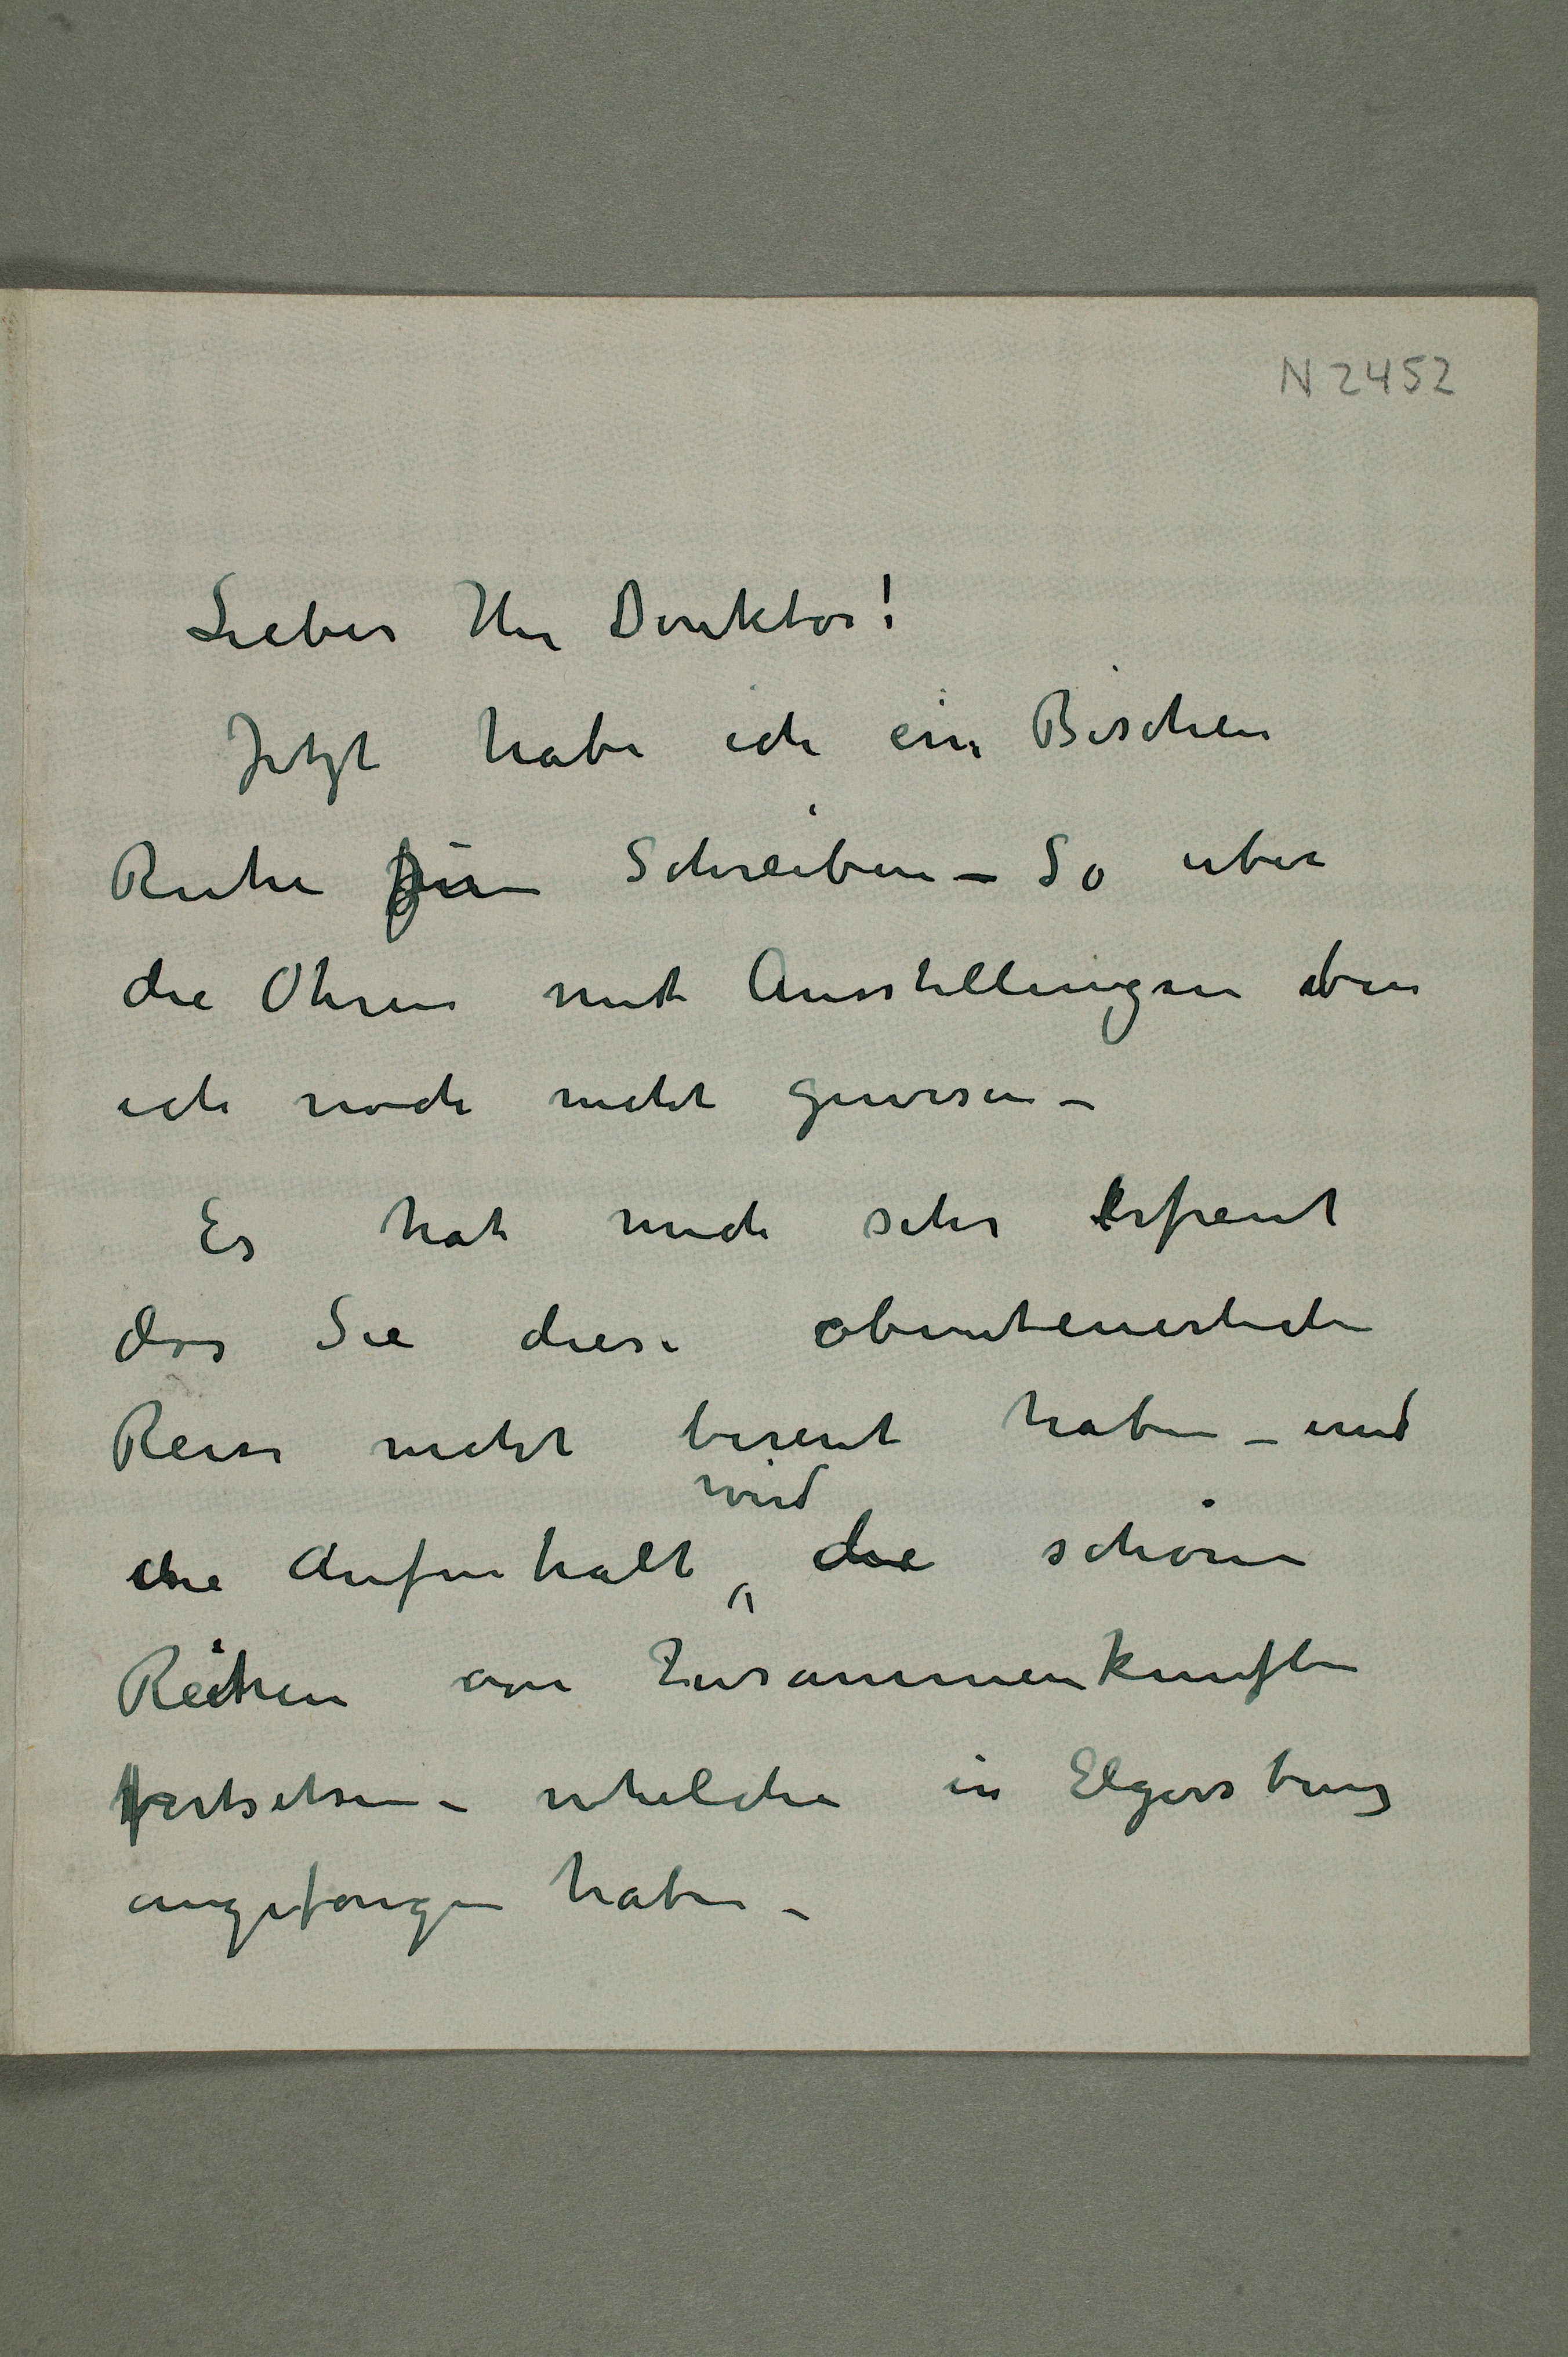 N 2452
Lieber Herr Direktor!
Jetzt habe ich ein Bischen
Ruhe zum Schreiben – So uber
die Ohren mit Ausstellungen bin
ich noch nicht gewesen –
Es hat mich sehr erfreut
das Sie diese abenteuerliche
Reise nicht bereut haben – und
die Aufenthalt wird die schöne
Reihen von Zusammenkunften
fortsetsen – whelche in Elgersburg
angefangen haben –